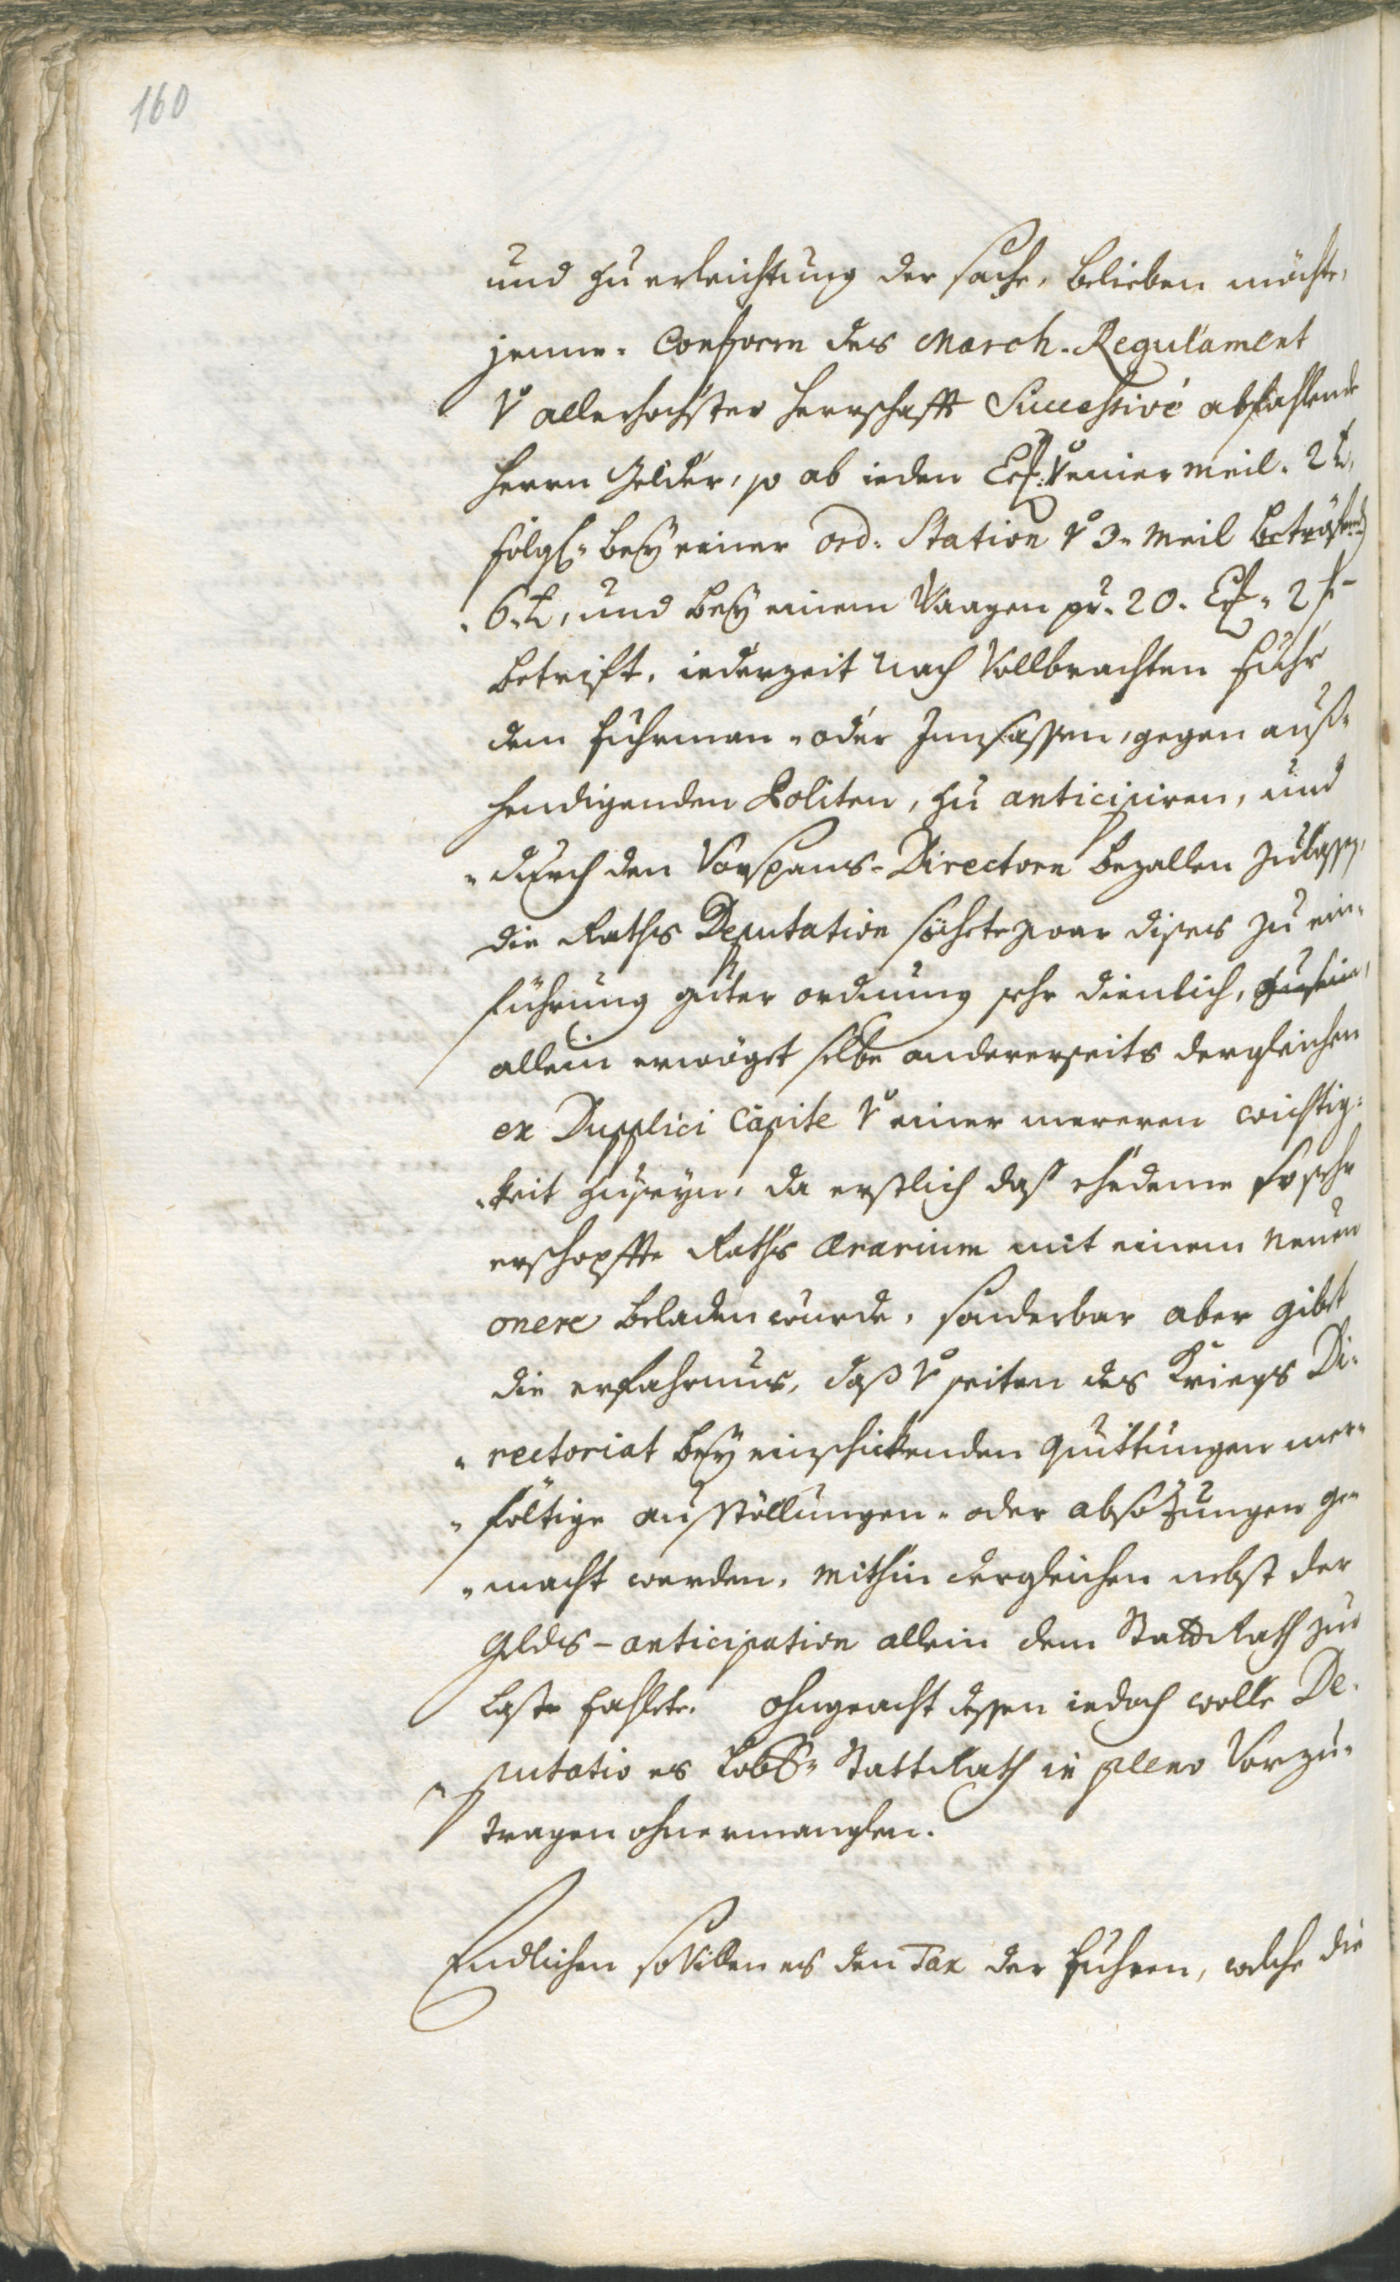 160
und zu erleichtung der sache, belieben möchte,
jenne. Conform des March-Regulament
V° allerhöchster Herrschafft Successivè abfahlende
Herrn Gelder, so ab ieden Ctt: V° einer meil. 2 k,
folgl: bey einer ord. Station V° 3. Meil beträffend
6 k, und bey einem Waagen pr. 20. Ctt. 2 f
betrift, iederzeit nach Vollbrachten Fuhr
dem Fuhrman- oder Innsassen, gegen auß-
hendigenden Politen, zu anticipiren, und
durch den Vorspans-Directorn bezallen zulassen,
die Raths Deputation söchete zwar dises zu ein-
führung guter ordnung sehr dienlich, zu sein,
allein erwöget selbe andererseits dergleichen
ex Dupplici Capite V° einer mereren wichtig-
keit zuseyn, da erstlich das ehedeme so sehr
erschopffte Raths Ærarium mit einem neuen
onere beladen wurde, sonderbar aber gibet
die erfahrnus, daß V° seiten des Kriegs Di-
rectoriat bey einschickenden quittungen mer-
föltige ausstöllungen- oder absözungen ge-
macht werden, mithin dergleichen nebst der
Gelds-anticipation allein dem Statt Rath zur
Last fahlete. ohngeacht dessen iedoch wolle De-
putatio es Lobl: Statt Rath in pleno Vorzu-
tragen ohnermanglen.
Endlichen so Villen es den Tax der Fuhren, welche die